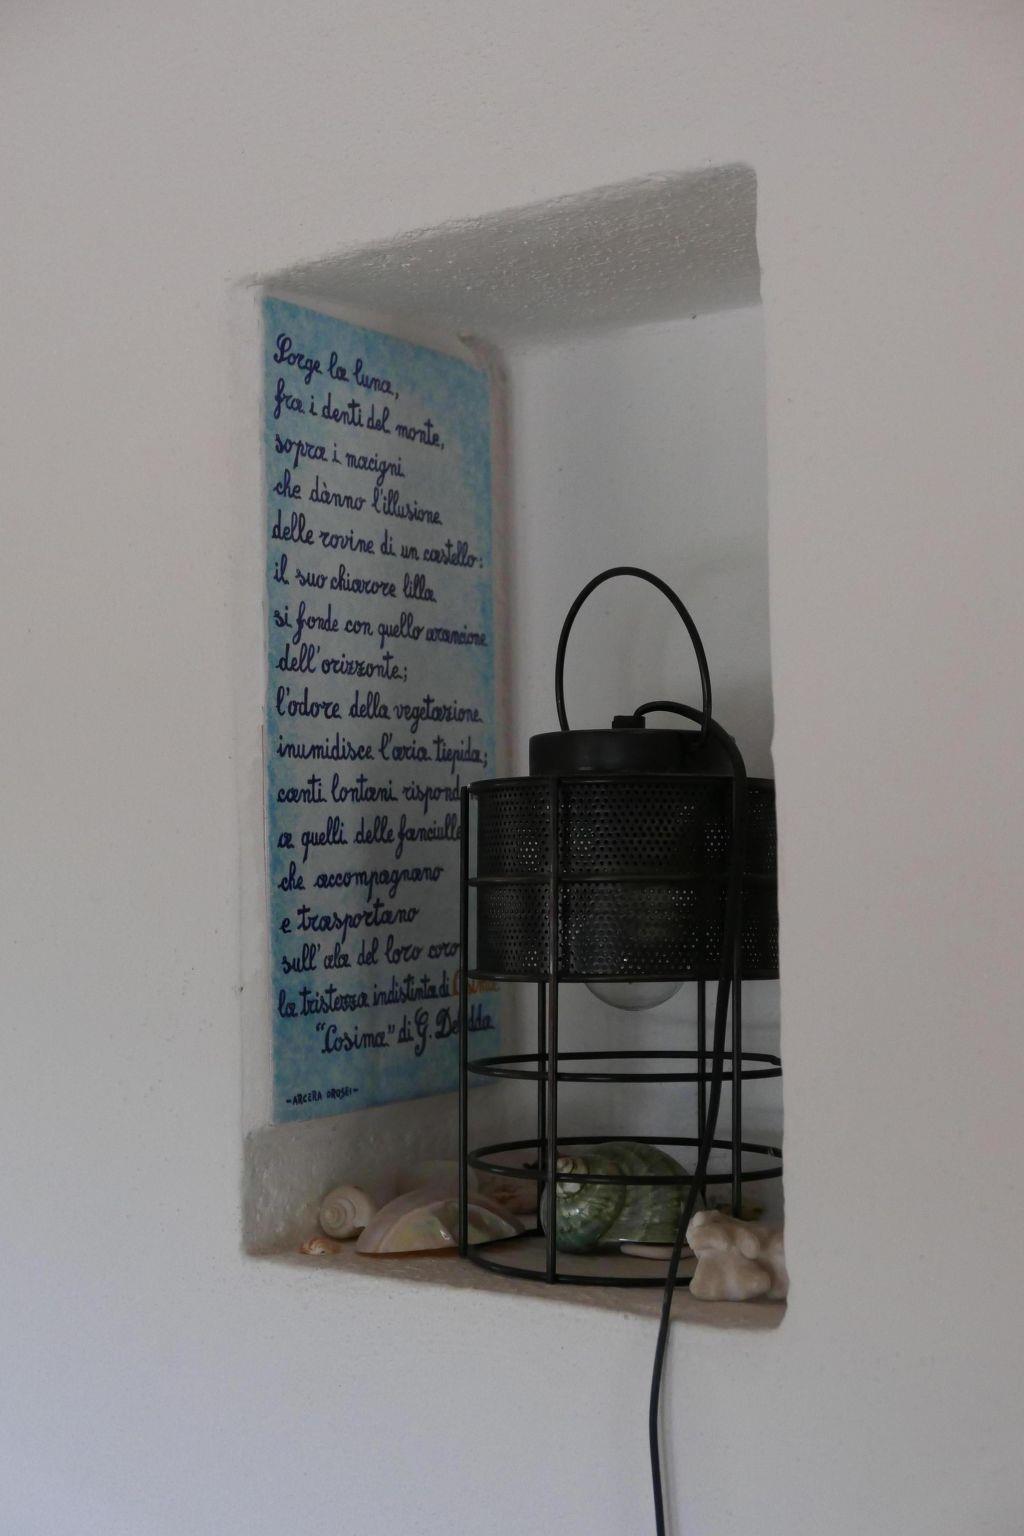 Sorge la luna,
fra i denti del monte,
sopra i macigni
che dànno l'illusione
delle rovine di un castello:
il suo chiarore lilla
si fonde con quello arancione
dell'orizzonte;
l'odore della vegetazione
inumidisce l'aria tiepida;
canti lontani rispond
a quelli delle fanciulle
che accompagnano
e trasportano
sull'ala del loro coro
la tristezza indistinta di Cosima
"Cosima" di G. Deledda
-ARCERA OROSEI-